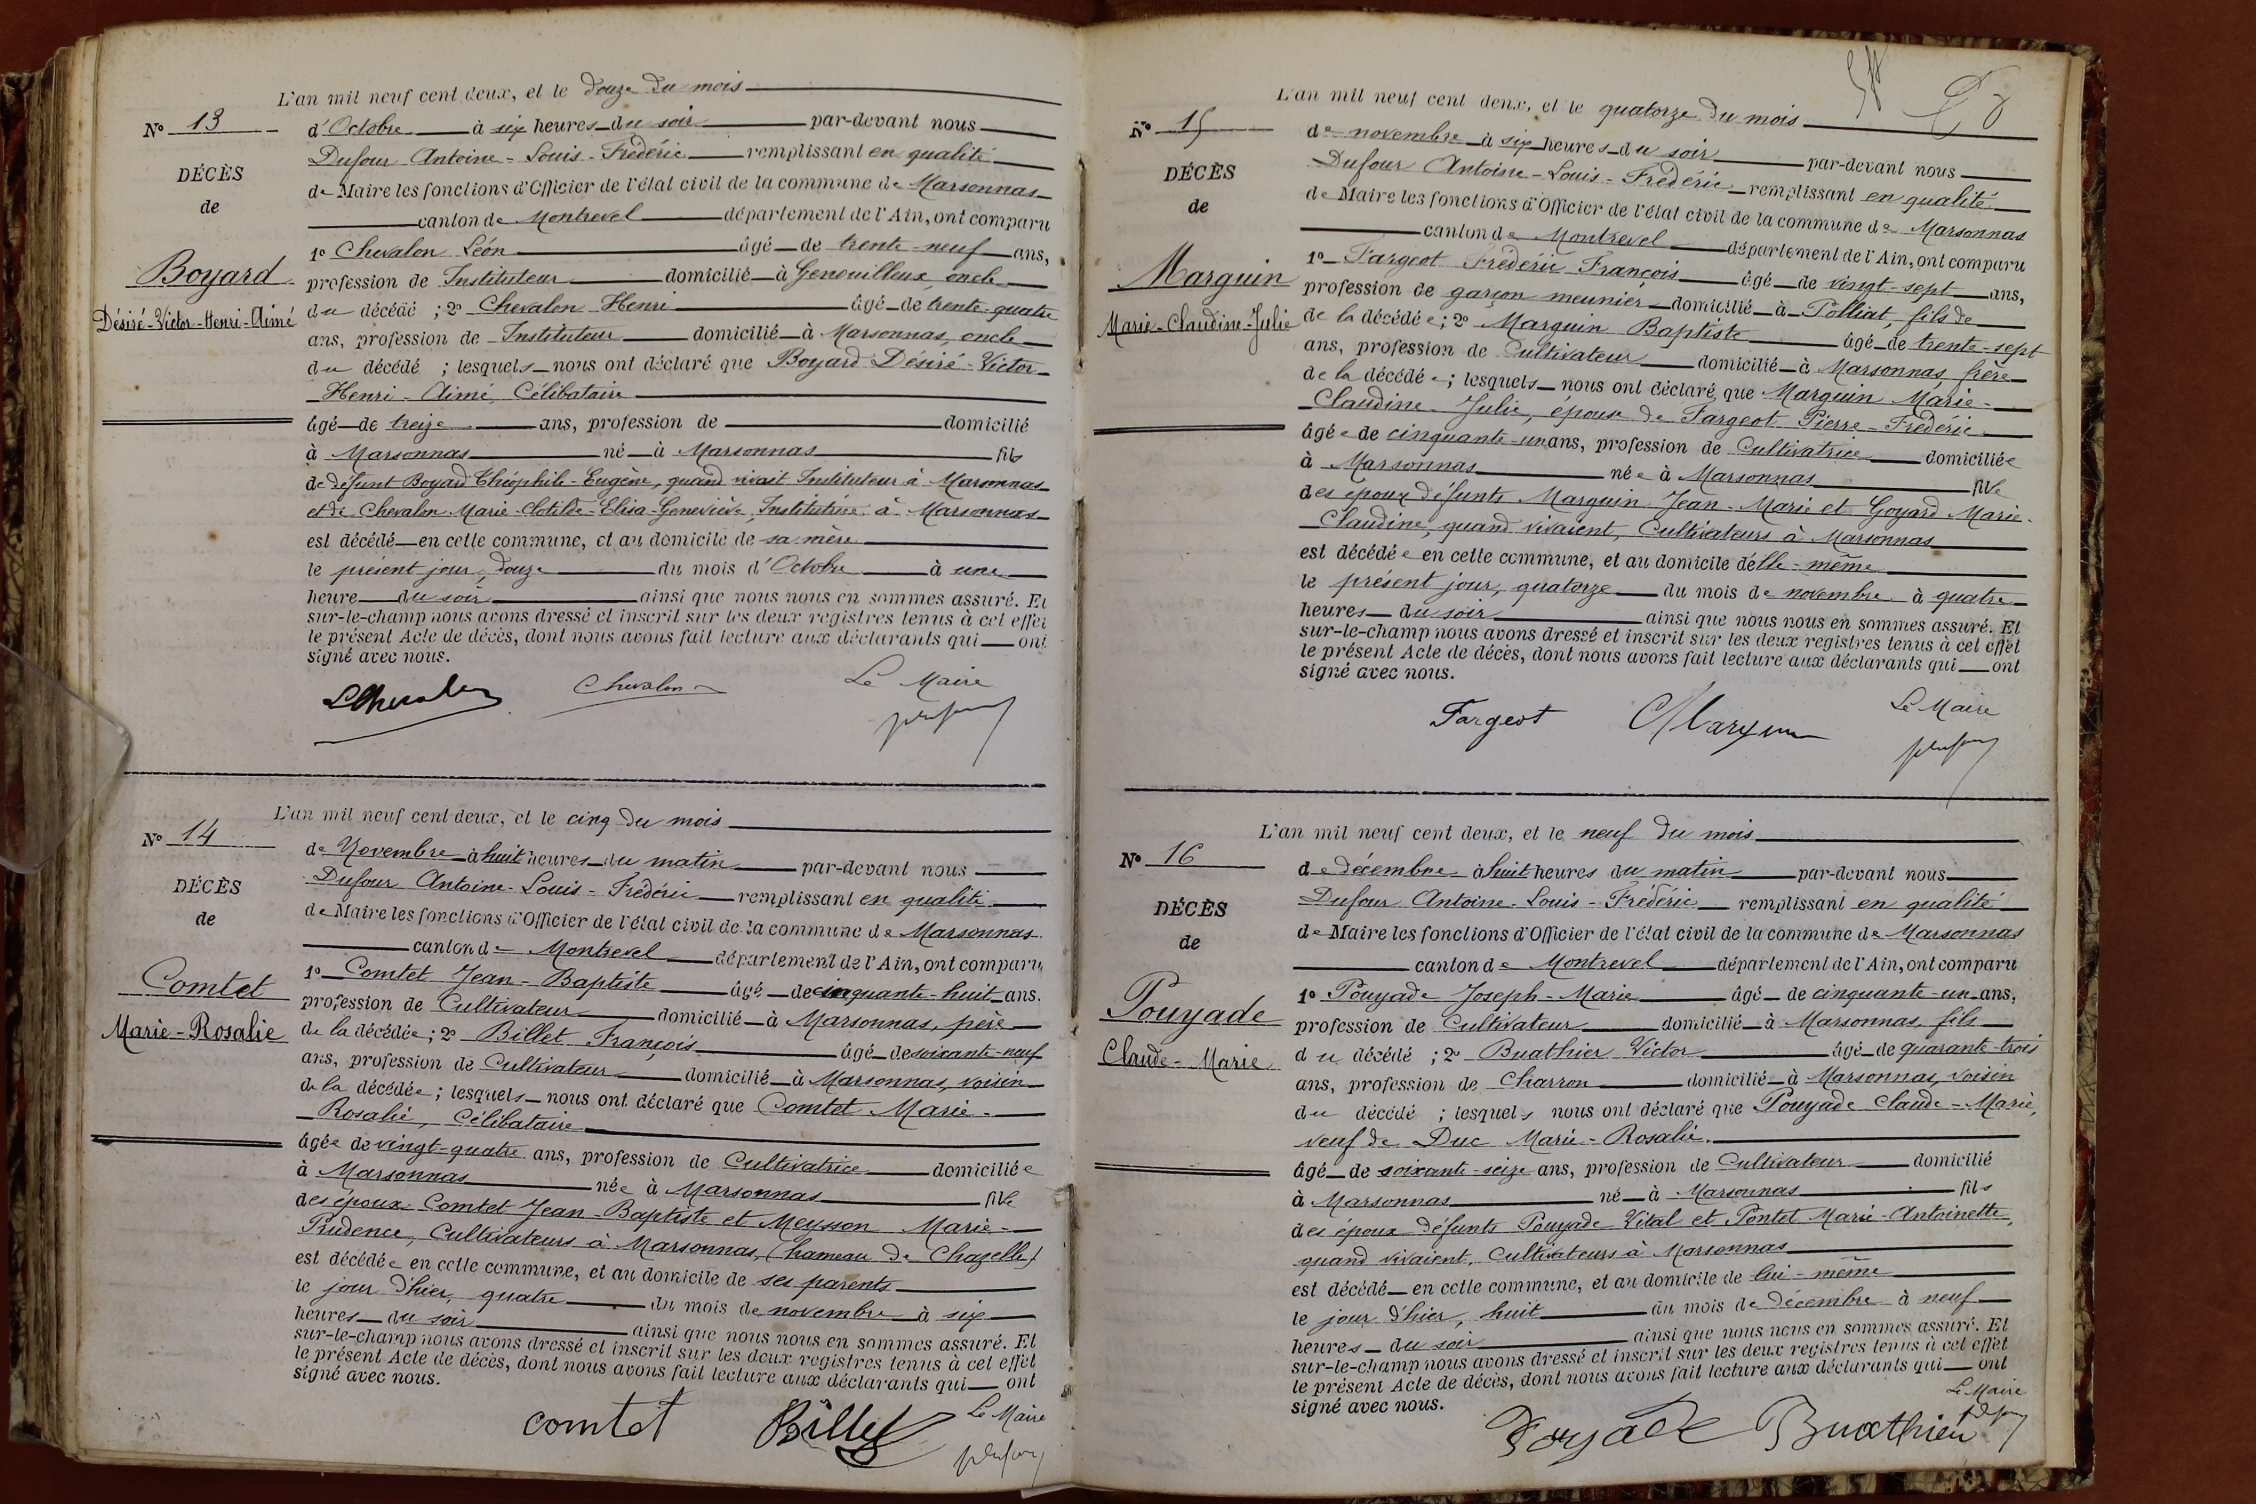 L'an mil neuf cent deux, et le douze du mois
N° 13
d'Octobre à six heures du soir par-devant nous
Dufour Antoine-Louis-Frédéric remplissant en qualité
DÉCÈS
de Maire les fonctions d'Officier de l'état civil de la commune de Marsonnas
de
canton de Montrevel département de l'Ain, ont comparu
1° Chevalon Léon âgé de trente-neuf ans,
Boyard
profession de Instituteur domicilié à Genouilleux, oncle
Désiré-Victor-Henri-Aimé
du décédé ; 2° Chevalon Henri âgé de trente-quatre
ans, profession de Instituteur domicilié à Marsonnas, oncle
du décédé ; lesquels nous ont déclaré que Boyard Désiré-Victor-
Henri-Aimé, Célibataire
âgé de treize ans, profession de domicilié
à Marsonnas né à Marsonnas fils
de défunt Boyard Théophile-Eugène, quand vivait Instituteur à Marsonnas
et de Chevalon Marie-Clotilde-Elisa-Geneviève, Institutrice à Marsonnas
est décédé en cette commune, et au domicile de sa mère
le présent jour, douze du mois d'Octobre à une
heure du soir ainsi que nous nous en sommes assuré. Et
sur-le-champ nous avons dressé et inscrit sur les deux registres tenus à cet effet
le présent Acte de décès, dont nous avons fait lecture aux déclarants qui ont
signé avec nous.
LChevalon Chevalon Le Maire
Dufour
L'an mil neuf cent deux, et le cinq du mois
N° 14
de Novembre à huit heures du matin par-devant nous
Dufour Antoine-Louis-Frédéric remplissant en qualité
DÉCÈS
de Maire les fonctions d'Officier de l'état civil de la commune de Marsonnas
de
canton de Montrevel département de l'Ain, ont comparu
1° Comtet Jean-Baptiste âgé de cinquante-huit ans.
Comtet
profession de Cultivateur domicilié à Marsonnas, père
Marie-Rosalie
de la décédée ; 2° Billet François âgé de soixante-neuf
ans, profession de Cultivateur domicilié à Marsonnas, voisin
de la décédée ; lesquels nous ont déclaré que Comtet Marie-
Rosalie, Célibataire
âgée de vingt-quatre ans, profession de Cultivatrice domiciliée
à Marsonnas née à Marsonnas fille
des époux Comtet Jean-Baptiste et Meysson Marie-
Prudence, Cultivateurs à Marsonnas, (hameau de Chazelle)
est décédée en cette commune, et au domicile de ses parents
le jour d'hier, quatre du mois de novembre à six
heures du soir ainsi que nous nous en sommes assuré. Et
sur-le-champ nous avons dressé et inscrit sur les deux registres tenus à cet effet
le présent Acte de décès, dont nous avons fait lecture aux déclarants qui ont
signé avec nous.
comtet Billet Le Maire
Dufour
L'an mil neuf cent deux, et le quatorze du mois
N° 15
de novembre à six heures du soir par-devant nous
Dufour Antoine-Louis-Frédéric remplissant en qualité
DÉCÈS
de Maire les fonctions d'Officier de l'état civil de la commune de Marsonnas
de
canton de Montrevel département de l'Ain, ont comparu
1° Fargeot Frédéric François âgé de vingt-sept ans,
Marguin
profession de garçon meunier domicilié à Polliat, fils de
Marie-Claudine-Julie
de la décédée ; 2° Marguin Baptiste âgé de trente-sept
ans, profession de Cultivateur domicilié à Marsonnas, frère
de la décédée ; lesquels nous ont déclaré que Marguin Marie-
Claudine-Julie, épouse de Fargeot Pierre-Frédéric
âgée de cinquante-un ans, profession de Cultivatrice domiciliée
à Marsonnas née à Marsonnas fille
des époux défunts Marguin Jean-Marie et Goyard Marie-
Claudine, quand vivaient, Cultivateurs à Marsonnas
est décédée en cette commune, et au domicile d'elle-même
le présent jour, quatorze du mois de novembre à quatre
heures du soir ainsi que nous nous en sommes assuré. Et
sur-le-champ nous avons dressé et inscrit sur les deux registres tenus à cet effet
le présent Acte de décès, dont nous avons fait lecture aux déclarants qui ont
signé avec nous.
Fargeot Marguin Le Maire
Dufour
L'an mil neuf cent deux, et le neuf du mois
N° 16
de décembre à huit heures du matin par-devant nous
Dufour Antoine-Louis-Frédéric remplissant en qualité
DÉCÈS
de Maire les fonctions d'Officier de l'état civil de la commune de Marsonnas
de
canton de Montrevel département de l'Ain, ont comparu
1° Pouyade Joseph-Marie âgé de cinquante-un ans,
Pouyade
profession de Cultivateur domicilié à Marsonnas, fils
Claude-Marie
du décédé ; 2° Buathier Victor âgé de quarante-trois
ans, profession de Charron domicilié à Marsonnas, voisin
du décédé ; lesquels nous ont déclaré que Pouyade Claude-Marie,
veuf de Duc Marie-Rosalie.
âgé de soixante-seize ans, profession de Cultivateur domicilié
à Marsonnas né à Marsonnas fils
des époux défunts Pouyade Vital et Pontet Marie-Antoinette,
quand vivaient, Cultivateurs à Marsonnas
est décédé en cette commune, et au domicile de lui-même
le jour d'hier, huit du mois de décembre à neuf
heures du soir ainsi que nous nous en sommes assuré. Et
sur-le-champ nous avons dressé et inscrit sur les deux registres tenus à cet effet
le présent Acte de décès, dont nous avons fait lecture aux déclarants qui ont
signé avec nous.
Le Maire
Pouyade Buathier Dufour